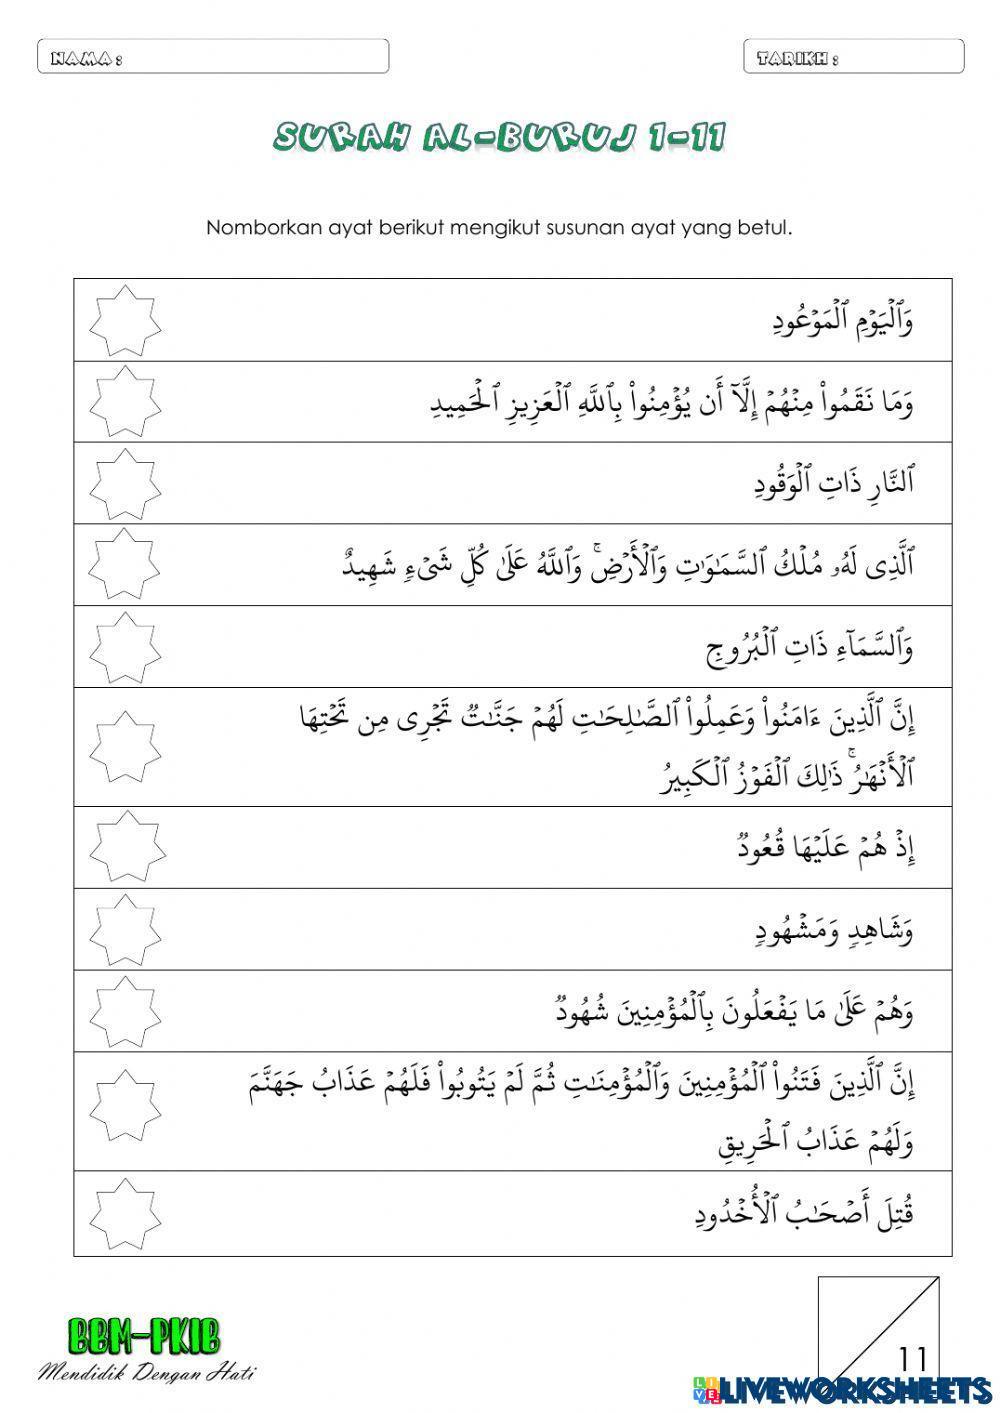 NAMA :
TARIKH :
SURAH AL-BURUJ 1-11
Nomborkan ayat berikut mengikut susunan ayat yang betul.
وَٱلۡيَوۡمِ ٱلۡمَوۡعُودِ
وَمَا نَقَمُواْ مِنۡهُمۡ إِلَّآ أَن يُؤۡمِنُواْ بِٱللَّهِ ٱلۡعَزِيزِ ٱلۡحَمِيدِ
ٱلنَّارِ ذَاتِ ٱلۡوَقُودِ
ٱلَّذِى لَهُۥ مُلۡكُ ٱلسَّمَٰوَٰتِ وَٱلۡأَرۡضِۚ وَٱللَّهُ عَلَىٰ كُلِّ شَىۡءٖ شَهِيدٌ
وَٱلسَّمَآءِ ذَاتِ ٱلۡبُرُوجِ
إِنَّ ٱلَّذِينَ ءَامَنُواْ وَعَمِلُواْ ٱلصَّٰلِحَٰتِ لَهُمۡ جَنَّٰتٞ تَجۡرِى مِن تَحۡتِهَا
ٱلۡأَنۡهَٰرُۚ ذَٰلِكَ ٱلۡفَوۡزُ ٱلۡكَبِيرُ
إِذۡ هُمۡ عَلَيۡهَا قُعُودٞ
وَشَاهِدٖ وَمَشۡهُودٖ
وَهُمۡ عَلَىٰ مَا يَفۡعَلُونَ بِٱلۡمُؤۡمِنِينَ شُهُودٞ
إِنَّ ٱلَّذِينَ فَتَنُواْ ٱلۡمُؤۡمِنِينَ وَٱلۡمُؤۡمِنَٰتِ ثُمَّ لَمۡ يَتُوبُواْ فَلَهُمۡ عَذَابُ جَهَنَّمَ
وَلَهُمۡ عَذَابُ ٱلۡحَرِيقِ
قُتِلَ أَصۡحَٰبُ ٱلۡأُخۡدُودِ
11
BBM-PKIB
Mendidik Dengan Hati
LIVE LIVEWORKSHEETS